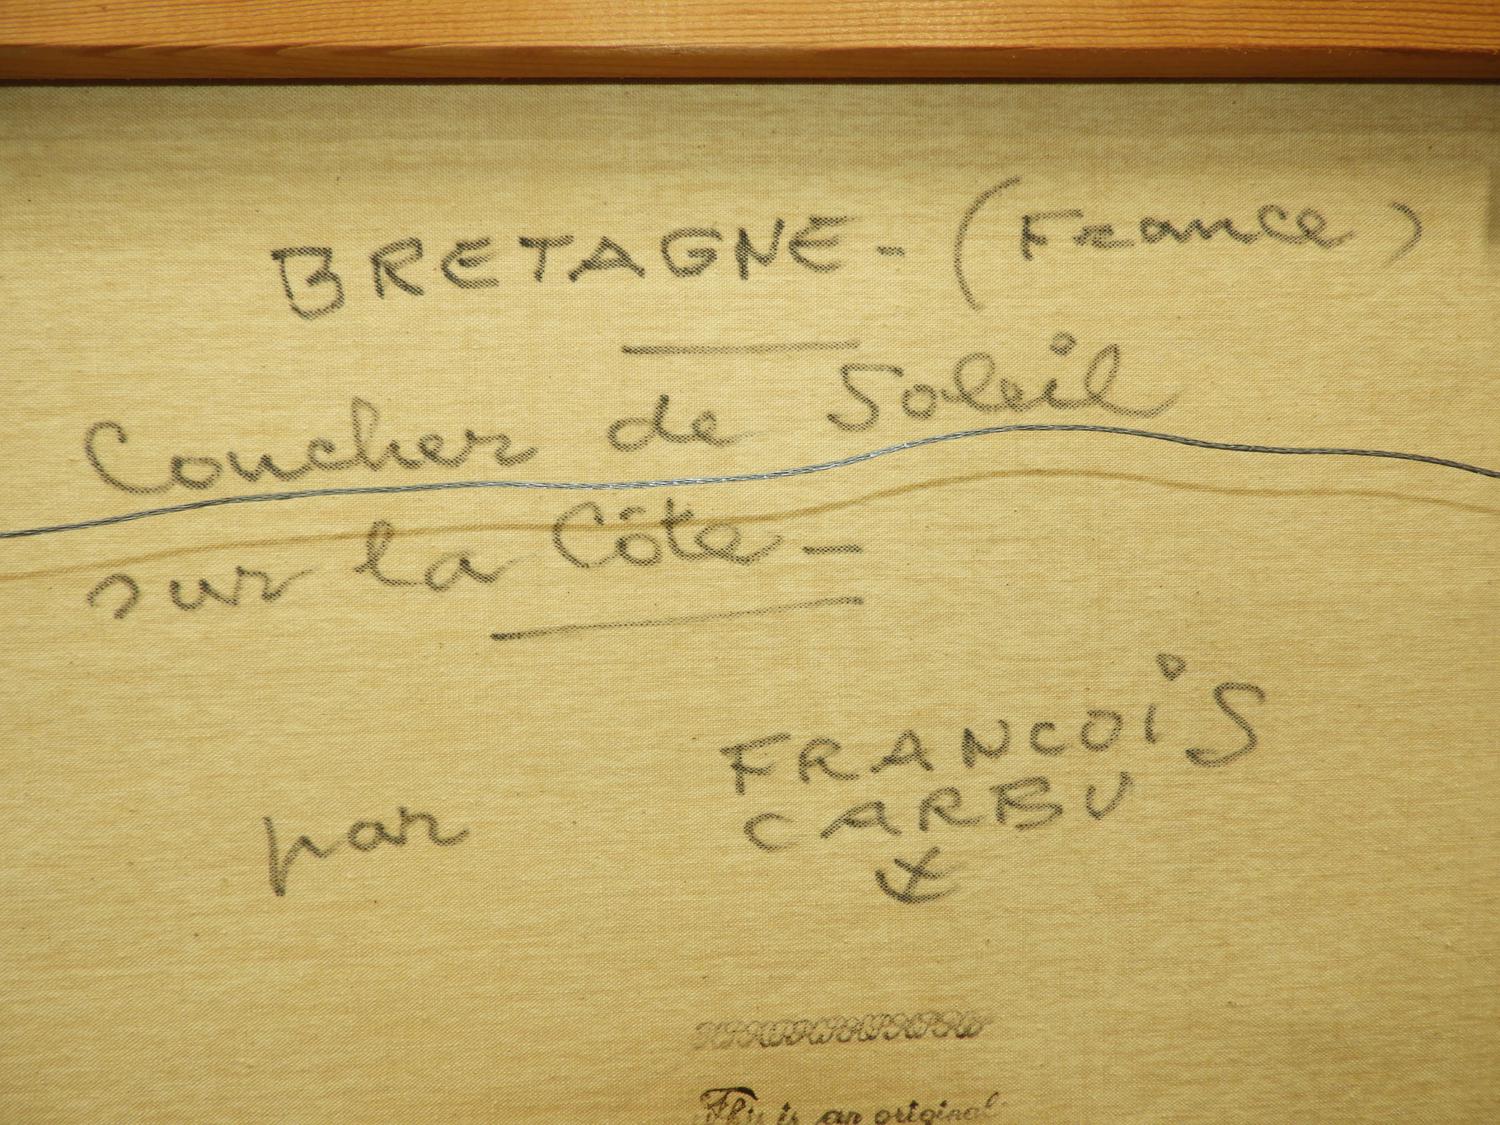 BRETAGNE - (France)
Coucher de Soleil
sur la Côte -
par FRANCOIS
CARBU
This is an original